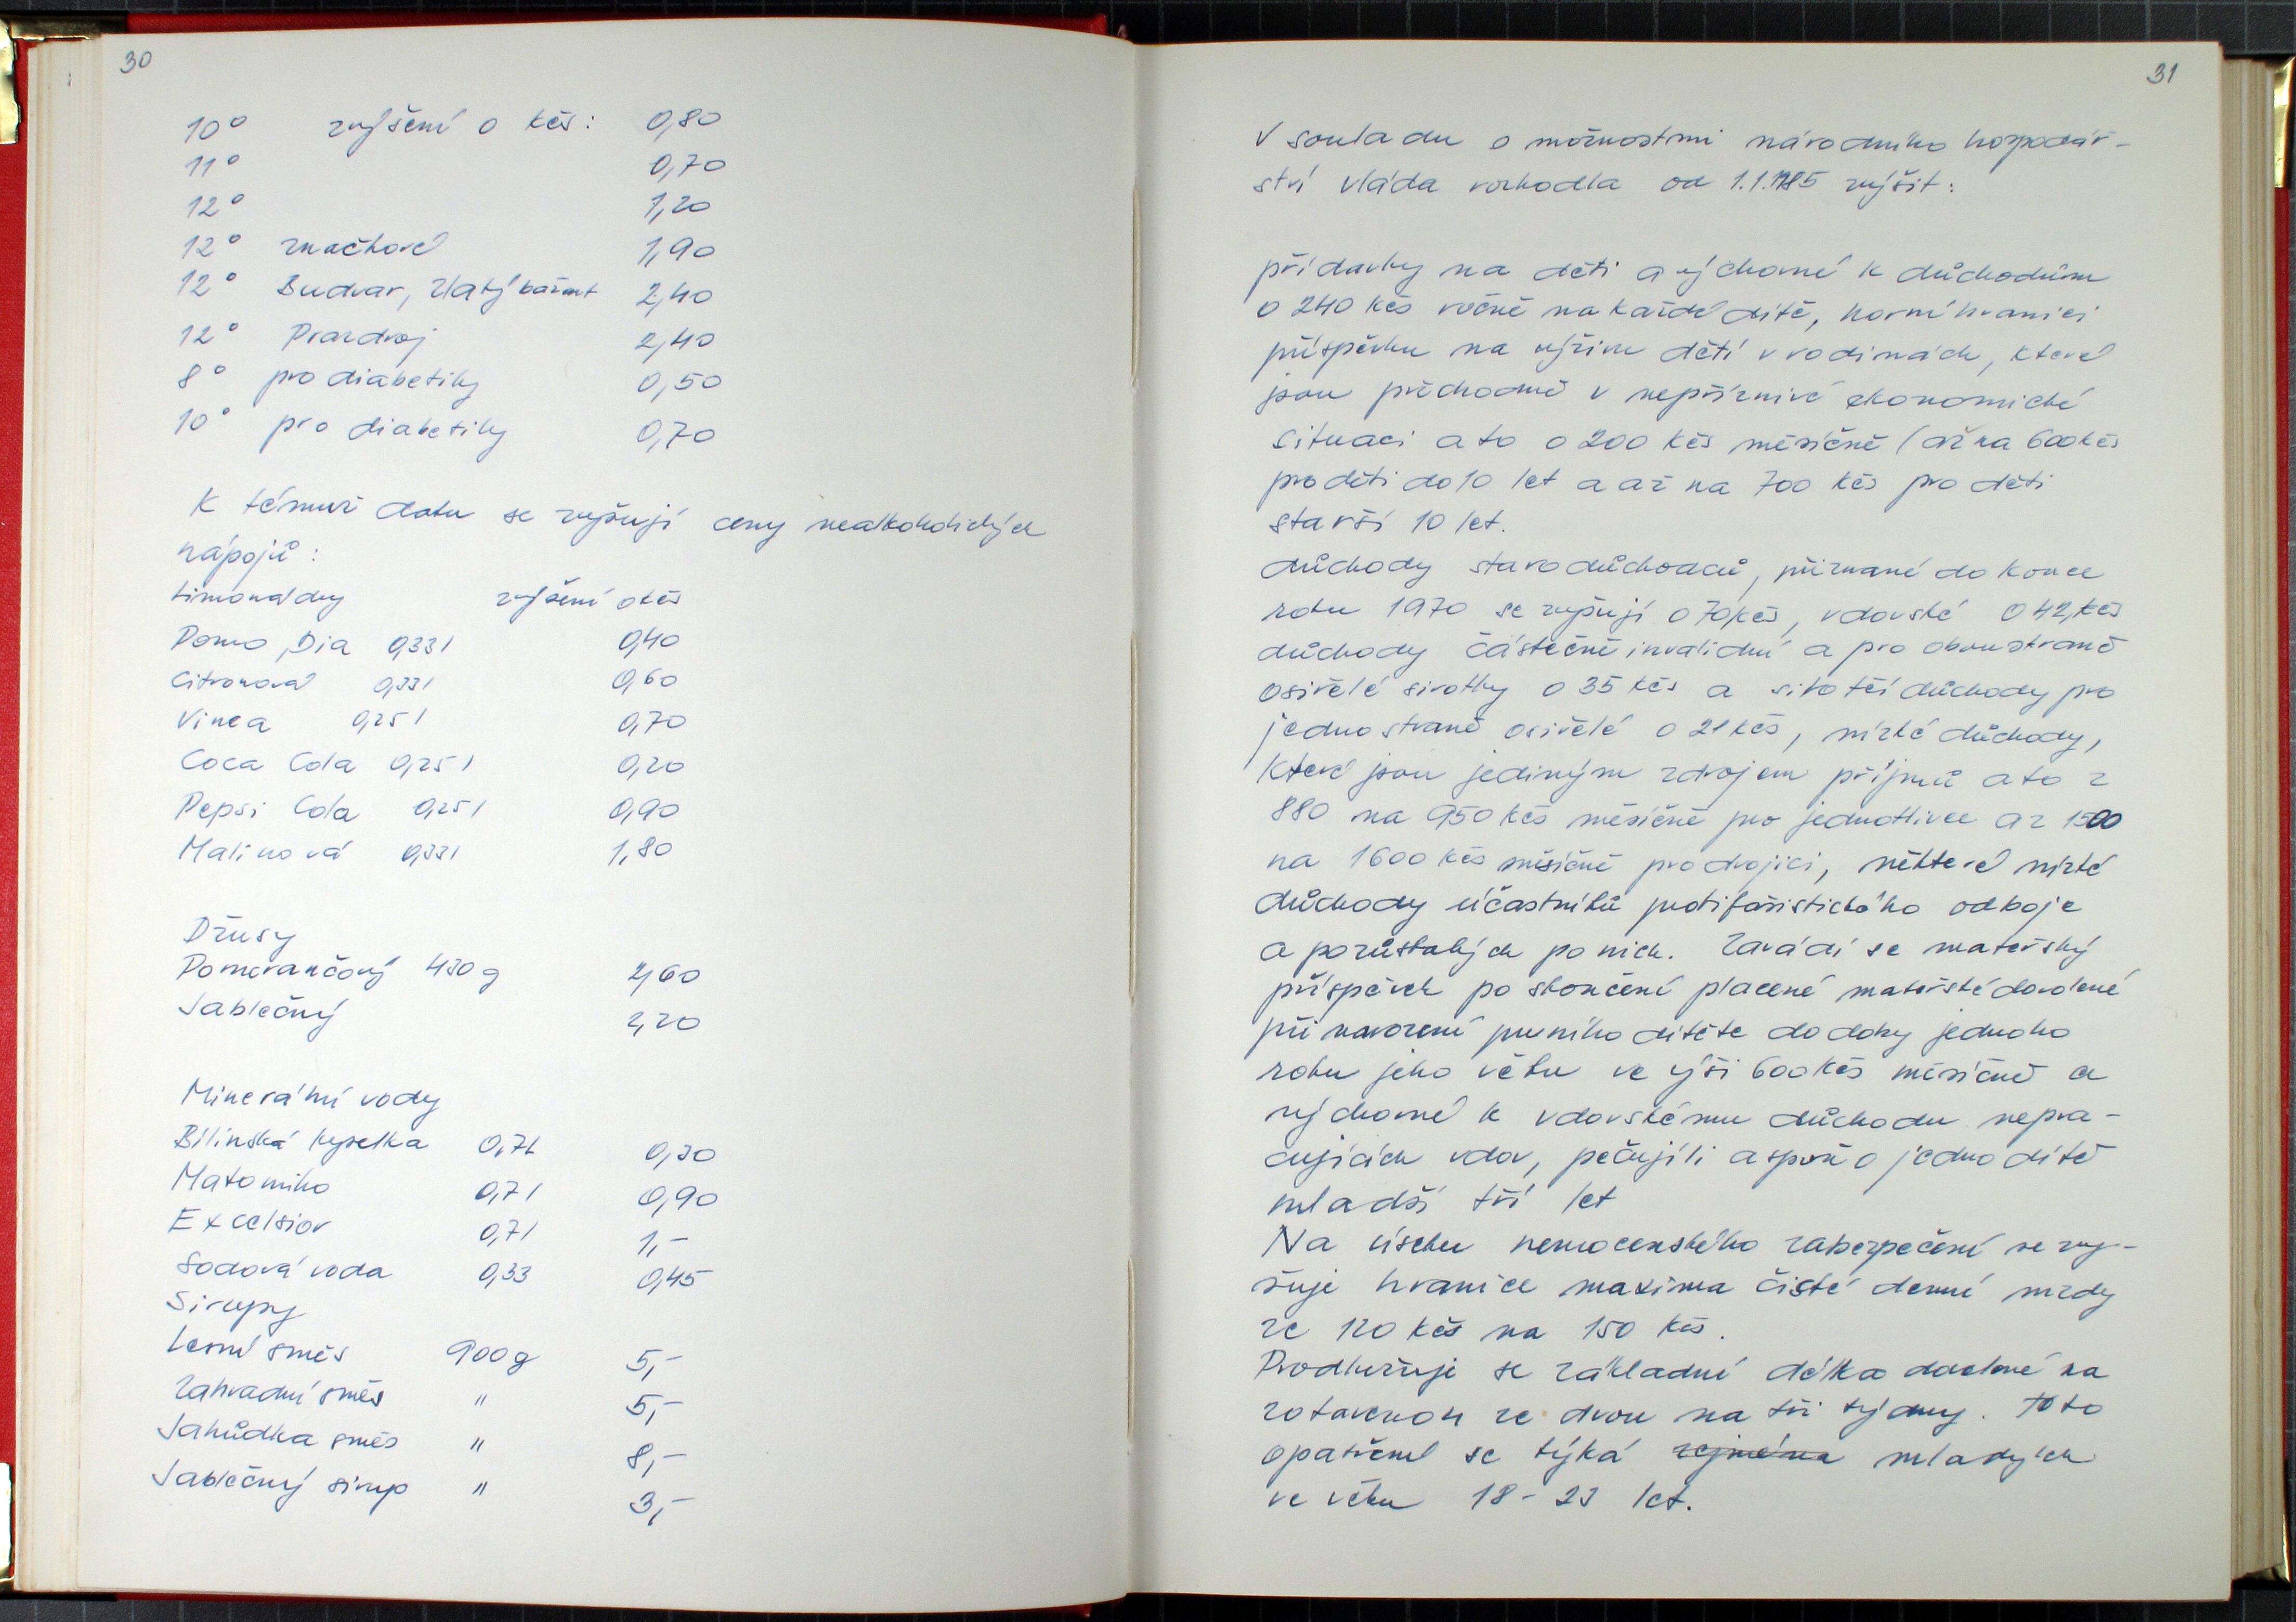 30
10° zvýšení o Kčs: 0,80
11° 0,70
12° 1,20
12° značkové 1,90
12° Budvar, Zlatý bažant 2,40
12° Prazdroj 2,40
8° pro diabetiky 0,50
10° pro diabetiky 0,70
K témuž datu se zvyšují ceny nealkoholických
nápojů:
Limonády zvýšení o Kčs
Pomo, Dia 0,33 l 0,40
Citronová 0,33 l 0,60
Vinea 0,25 l 0,70
Coca Cola 0,25 l 0,20
Pepsi Cola 0,25 l 0,90
Malinová 0,33 l 1,80
Džusy
Pomerančový 430 g 2,60
Jablečný 2,20
Minerální vody
Bílinská kyselka 0,7 l 0,30
Matoniho 0,7 l 0,90
Excelsior 0,7 l 1,-
Sodová voda 0,33 0,45
Sirupy
Lesní směs 900 g 5,-
Zahradní směs " 5,-
Jahůdka směs " 8,-
Jablečný sirup " 3,-
31
V souladu s možnostmi národního hospodář-
ství vláda rozhodla od 1.1.1985 zvýšit:
přídavky na děti a výchovné k důchodům
o 240 Kčs ročně na každé dítě, horní hranici
příspěvku na výživu dětí v rodinách, které
jsou přechodně v nepříznivé ekonomické
situaci a to o 200 Kčs měsíčně (až na 600 Kčs
pro děti do 10 let a až na 700 Kčs pro děti
starší 10 let.
důchody starodůchodců, přiznané do konce
roku 1970 se zvyšují o 70 Kčs, vdovské o 42,Kčs
důchody částečně invalidní a pro oboustraně
osiřelé sirotky o 35 Kčs a sirotčí důchody pro
jednostraně osiřelé o 21 Kčs, nízké důchody,
které jsou jediným zdrojem příjmů a to z
880 na 950 Kčs měsíčně pro jednotlivce a z 1500
na 1600 Kčs měsíčně pro dvojici, některé nízké
důchody účastníků protifašistického odboje
a pozůstalých po nich. Zavádí se mateřský
příspěvek po skončení placené mateřské dovolené
při narození prvního dítěte do doby jednoho
roku jeho věku ve výši 600 Kčs měsíčně a
výchovné k vdovskému důchodu nepra-
cujících vdov, pečují li aspoň o jedno dítě
mladší tří let
Na úseku nemocenského zabezpečení se zvy-
šuje hranice maxima čisté denní mzdy
ze 120 Kčs na 150 Kčs.
Prodlužuje se základní délka dovolené na
zotavenou ze dvou na tři týdny. Toto
opatření se týká zejména mladých
ve věku 18 - 23 let.